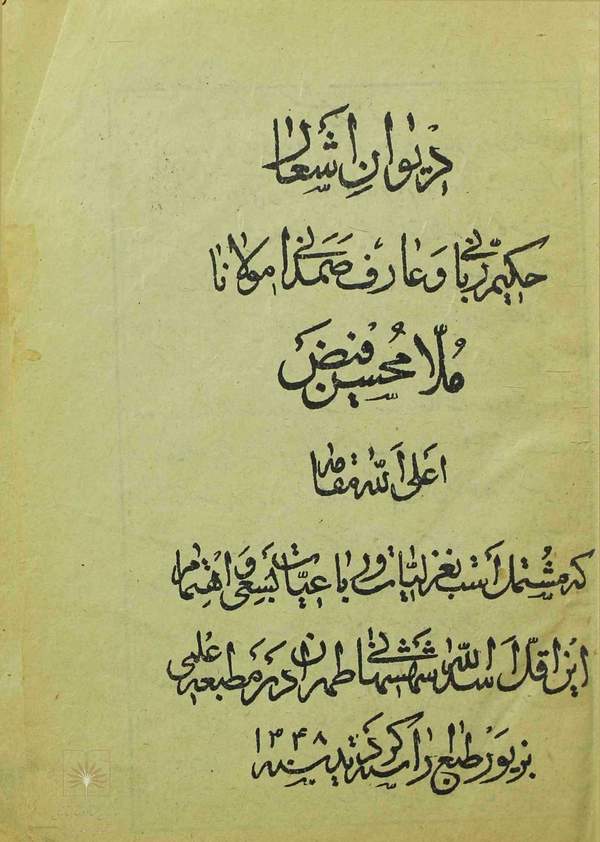 دیوان اشعار
حکیم ربانی و عارف صمدانی مولانا
ملا محسن فیض
اعلی الله مقامه
که مشتمل است بغزلیات و رباعیات بسعی و اهتمام
این اقل اسدالله شهشهانی طهران در مطبعه علمی
بزیور طبع آراسته گردید سنه ۱۳۴۸